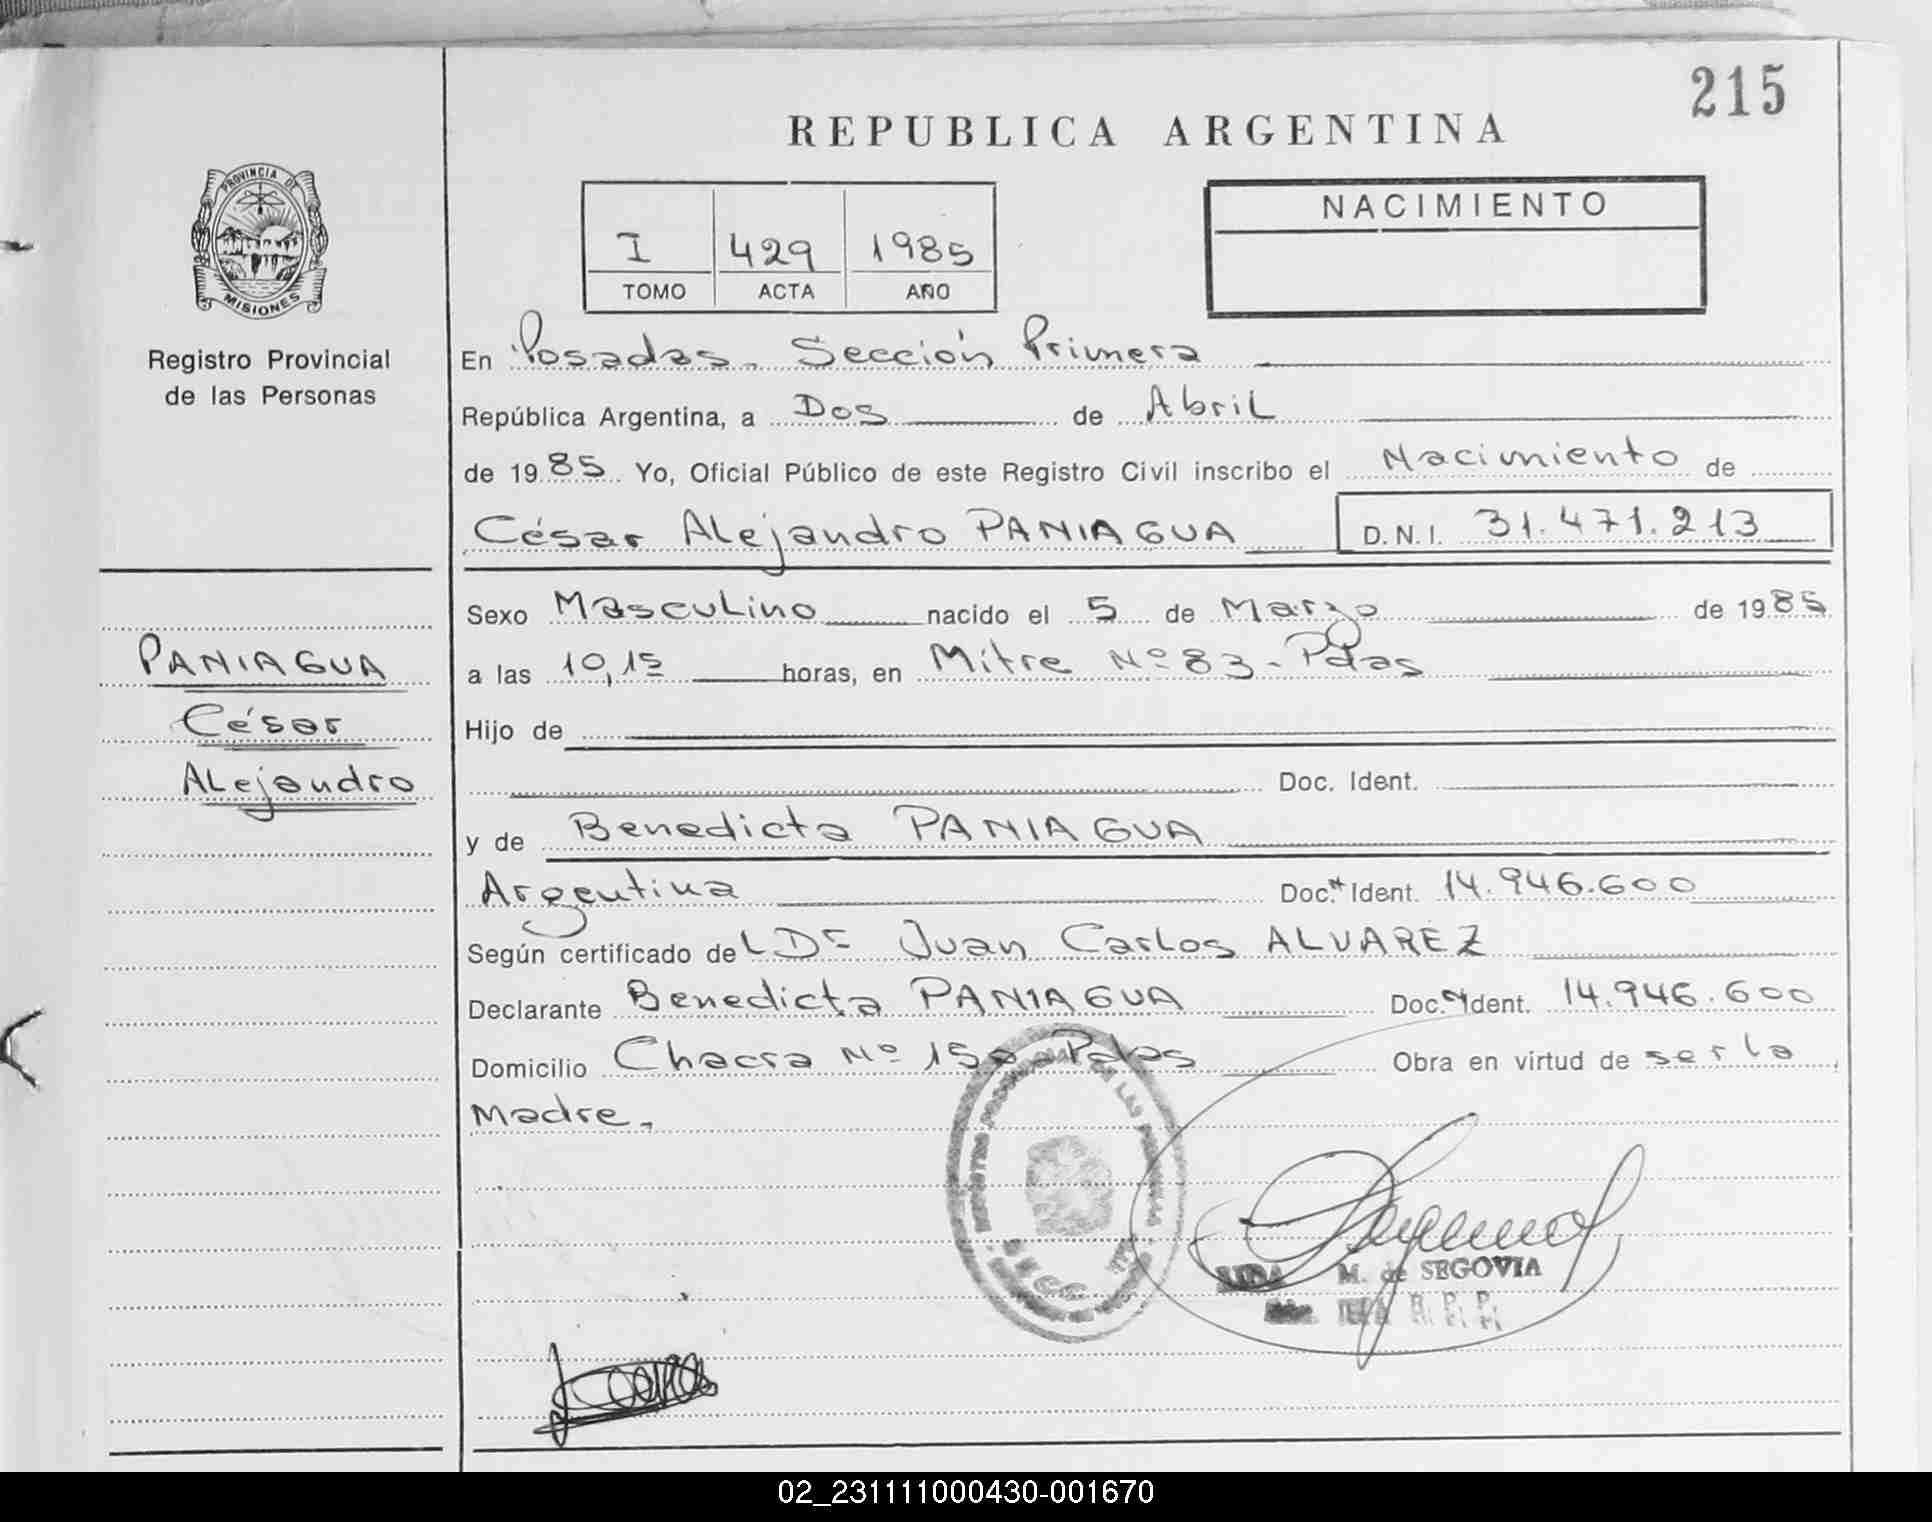 215
REPUBLICA ARGENTINA
PROVINCIA DE
MISIONES
Registro Provincial
de las Personas
I 429 1985
TOMO ACTA AÑO
NACIMIENTO
En Posadas. Sección Primera
República Argentina, a Dos de Abril
de 1985. Yo, Oficial Público de este Registro Civil inscribo el Nacimiento de
César Alejandro PANIAGUA D.N.I. 31.471.213
Sexo Masculino nacido el 5 de Marzo de 1985
PANIAGUA
César
Alejandro
a las 10,15 horas, en Mitre Nº 83 - Pdas
Hijo de
Doc. Ident.
y de Benedicta PANIAGUA
Argentina Doc. Ident. 14.946.600
Según certificado del Dr Juan Carlos ALVAREZ
Declarante Benedicta PANIAGUA Doc. Ident. 14.946.600
Domicilio Chacra Nº Pdas Obra en virtud de ser la
Madre.
M. de SEGOVIA
R. P. P.
02_231111000430-001670